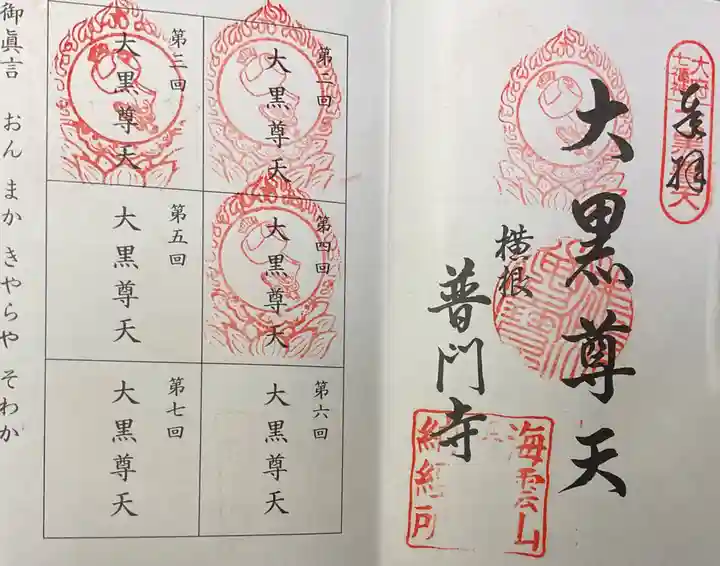 奉拝
大府
七福神
大黒尊天
横根
普門寺
海雲山
第二回
大黒尊天
第三回
大黒尊天
第四回
大黒尊天
第五回
大黒尊天
第六回
大黒尊天
第七回
大黒尊天
御眞言 おん まか きやらや そわか